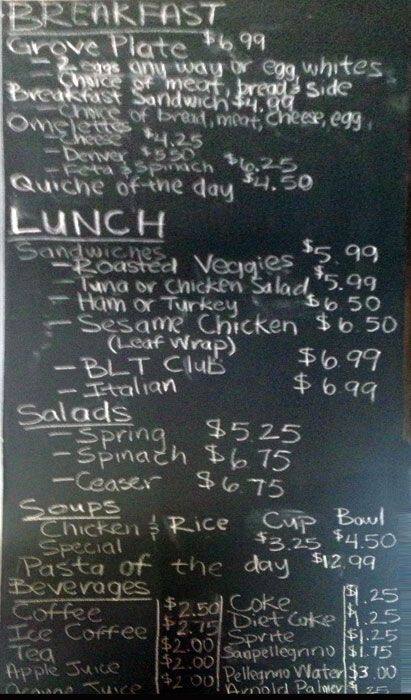 BREAKFAST
Grove Plate $6.99
- 2 eggs any way or egg whites
Choice of meat, bread & side
Breakfast Sandwich $4.99
- Choice of bread, meat, cheese, egg.
Omelettes
- Cheese $4.25
- Denver $5.50
- Feta & Spinach $6.25
Quiche of the day $4.50
LUNCH
Sandwiches
- Roasted Veggies $5.99
- Tuna or Chicken Salad $5.99
- Ham or Turkey $6.50
- Sesame Chicken $6.50
(Leaf Wrap)
- BLT Club $6.99
- Italian $6.99
Salads
- Spring $5.25
- Spinach $6.75
- Ceaser $6.75
Soups
Chicken & Rice Cup Bowl
Special $3.25 $4.50
Pasta of the day $12.99
Beverages
Coffee $2.50 Coke $1.25
Ice Coffee $2.75 Diet Coke $1.25
Tea $2.00 Sprite $1.25
Apple Juice $2.00 Sanpellegrino $1.75
Orange Juice $2.00 Pellegrino Water $3.00
Arnold Palmer